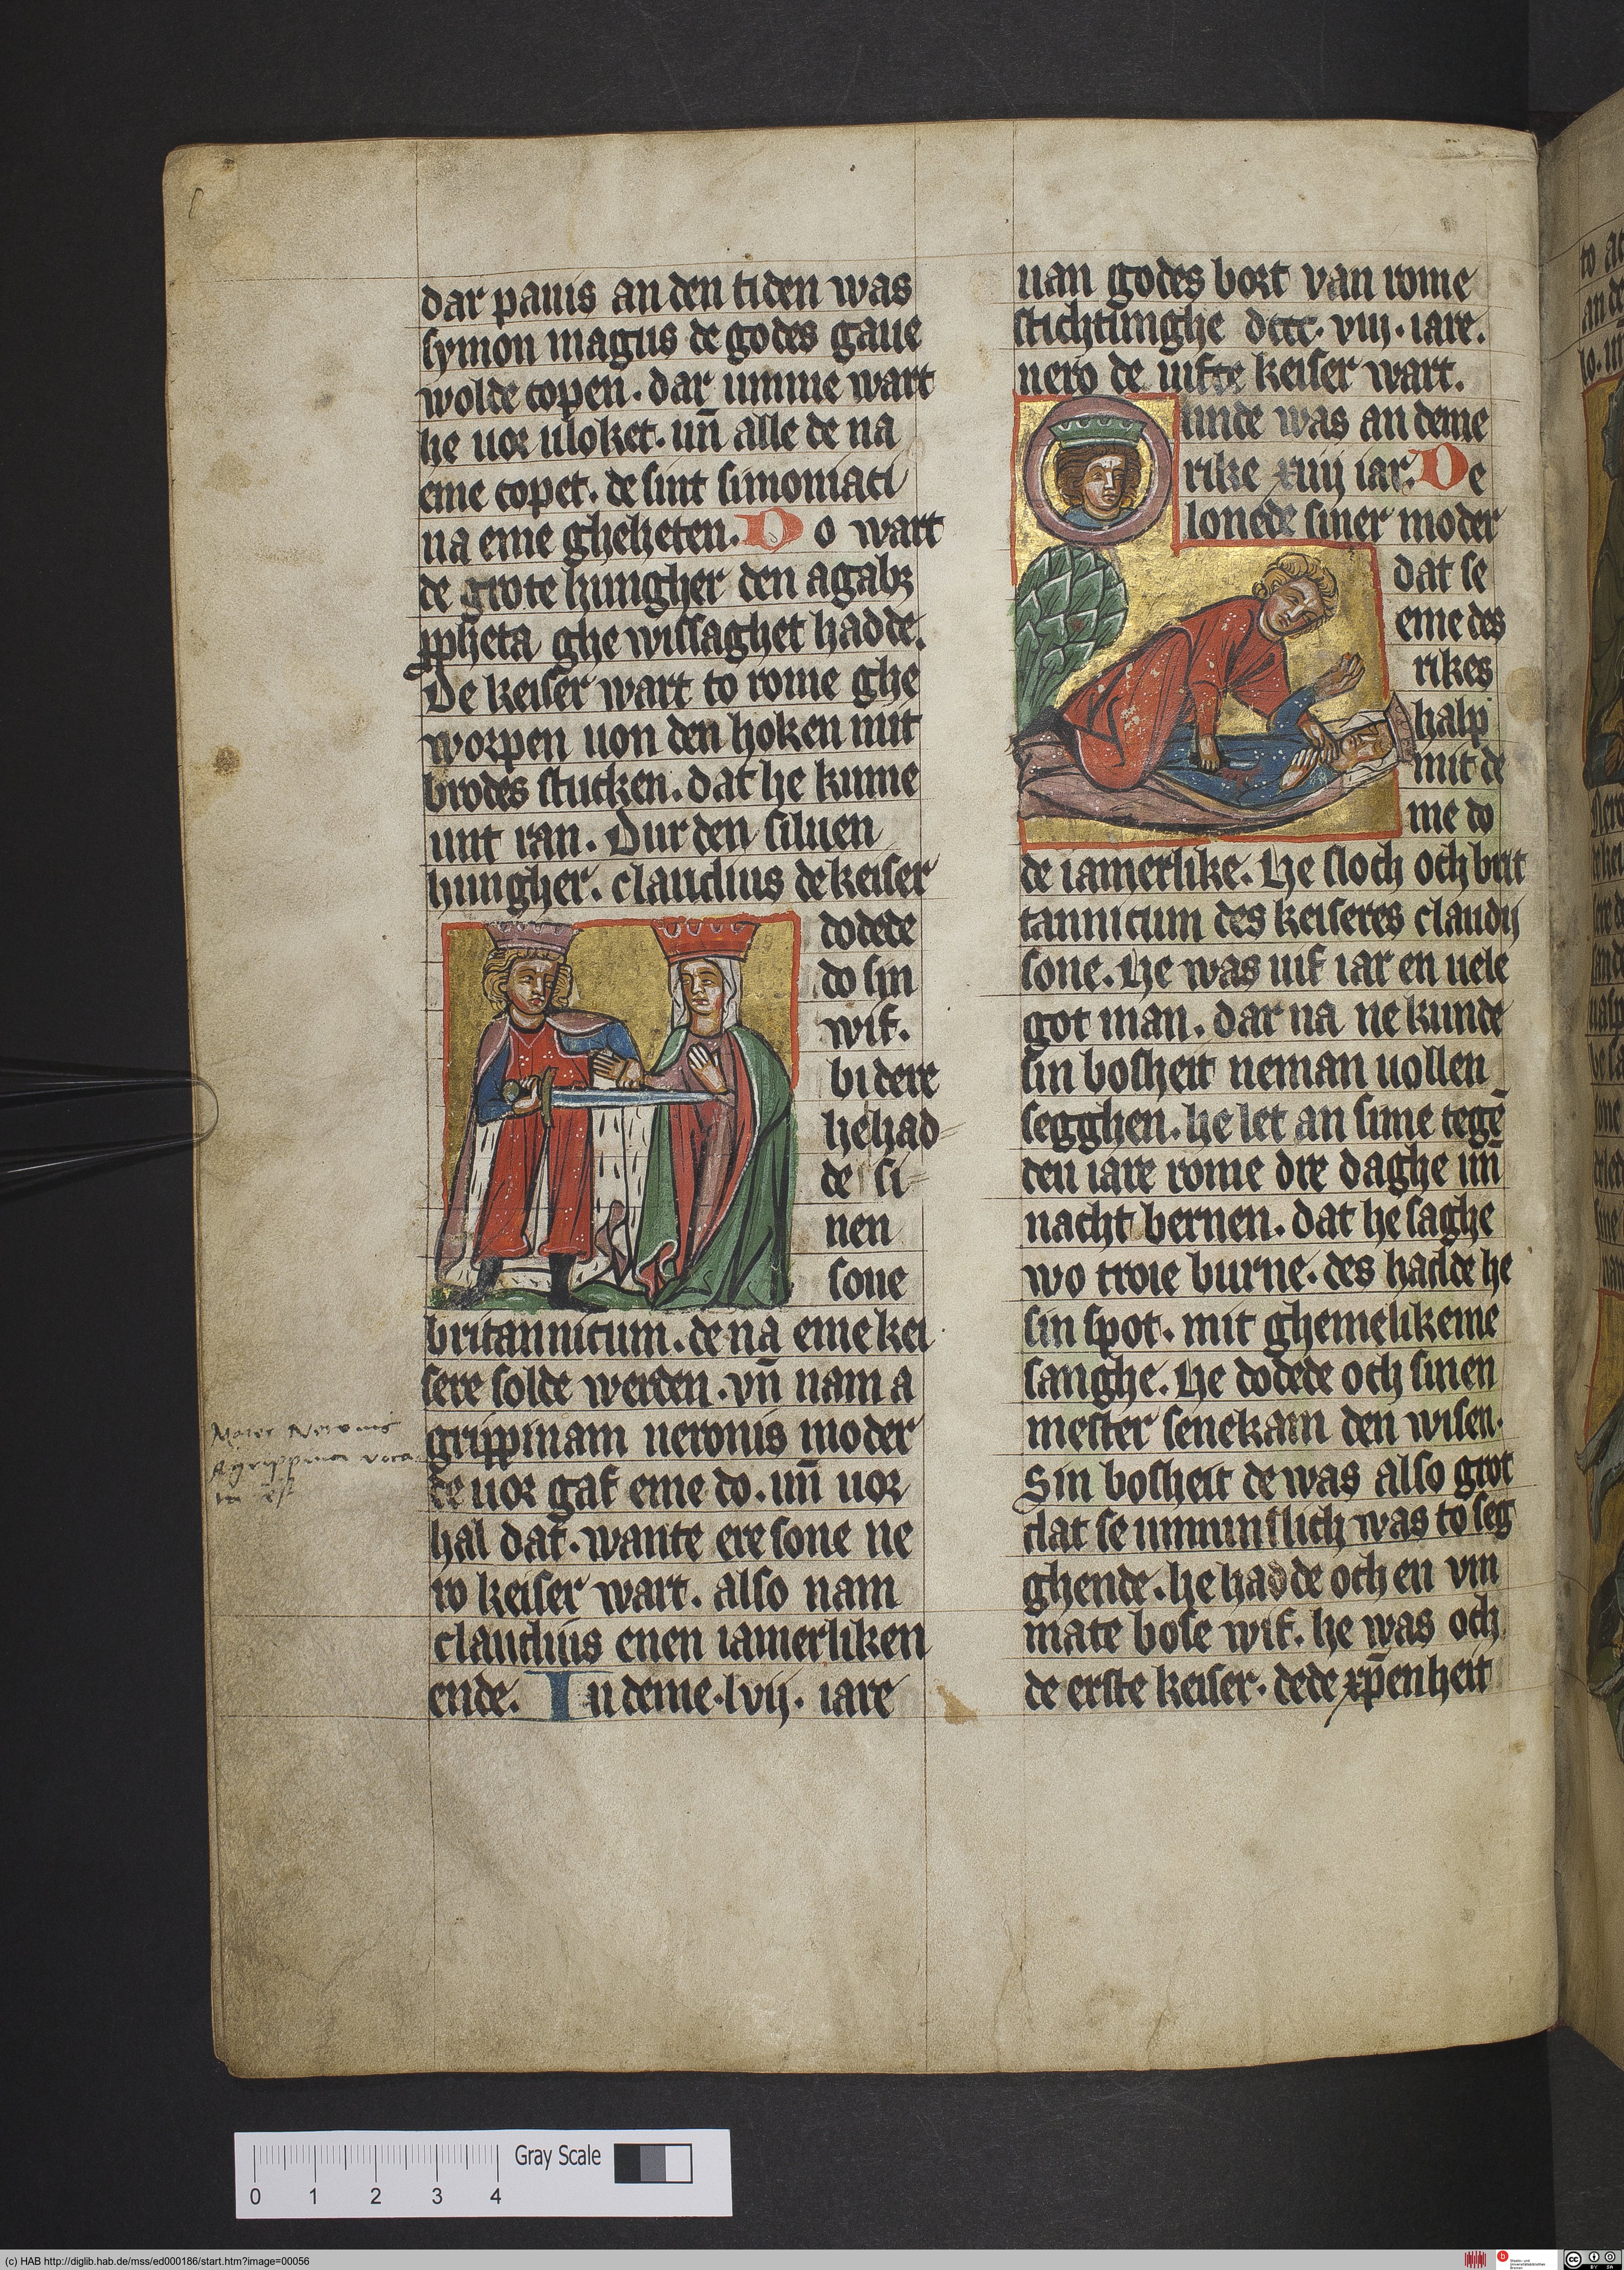 dar pauis an den tiden was
symon magus de godes gaue
wolde copen. dar umme wart
he uor uloket. un̄ alle de na
eme copet. de sint simoniaci
na eme gheheten. Do wart
de grote hungher den agabꝫ
ꝓpheta ghe wissaghet hadde.
De keiser wart to rome ghe
worpen uon den hoken mit
brodes stucken. dat he kume
unt ran. Dur den siluen
hungher. claudius de keiser
dodede
do sin
wif.
bi dere
he had
de si
nen
sone
britannicum. de na eme kei
sere solde werden. vn̄ nam a
grippinam neronis moder
de uor gaf eme do. un̄ uor
hal dat. wante ere sone ne
ro keiser wart. also nam
claudius enen iamerliken
ende. In deme. lvij. iare
Mater Neronis
Agrippina
uan godes bort van rome
stichtunghe dccc. viij. iare.
nero de uifte keiser wart.
unde was an deme
rike xiiij iar. De
lonede siner moder
dat se
eme des
rikes
halp
mit de
me do
de iamerlike. He sloch och brit
tannicum des keiseres claudij
sone. He was uif iar en uele
got man. dar na ne kunde
sin bosheit neman uollen
segghen. he let an sime tegē
den iare rome dre daghe un̄
nacht bernen. dat he saghe
wo troie burne. des hadde he
sin spot. mit ghemelikeme
sanghe. He dodede och sinen
mester senekam den wisen.
Sin bosheit de was also grot
dat se ummunslich was to seg
ghende. he hadde och en vm
mate bose wif. he was och
de erste keiser. dede xp̄enheit
Gray Scale
0 1 2 3 4
(c) HAB http://diglib.hab.de/mss/ed000186/start.htm?image=00056